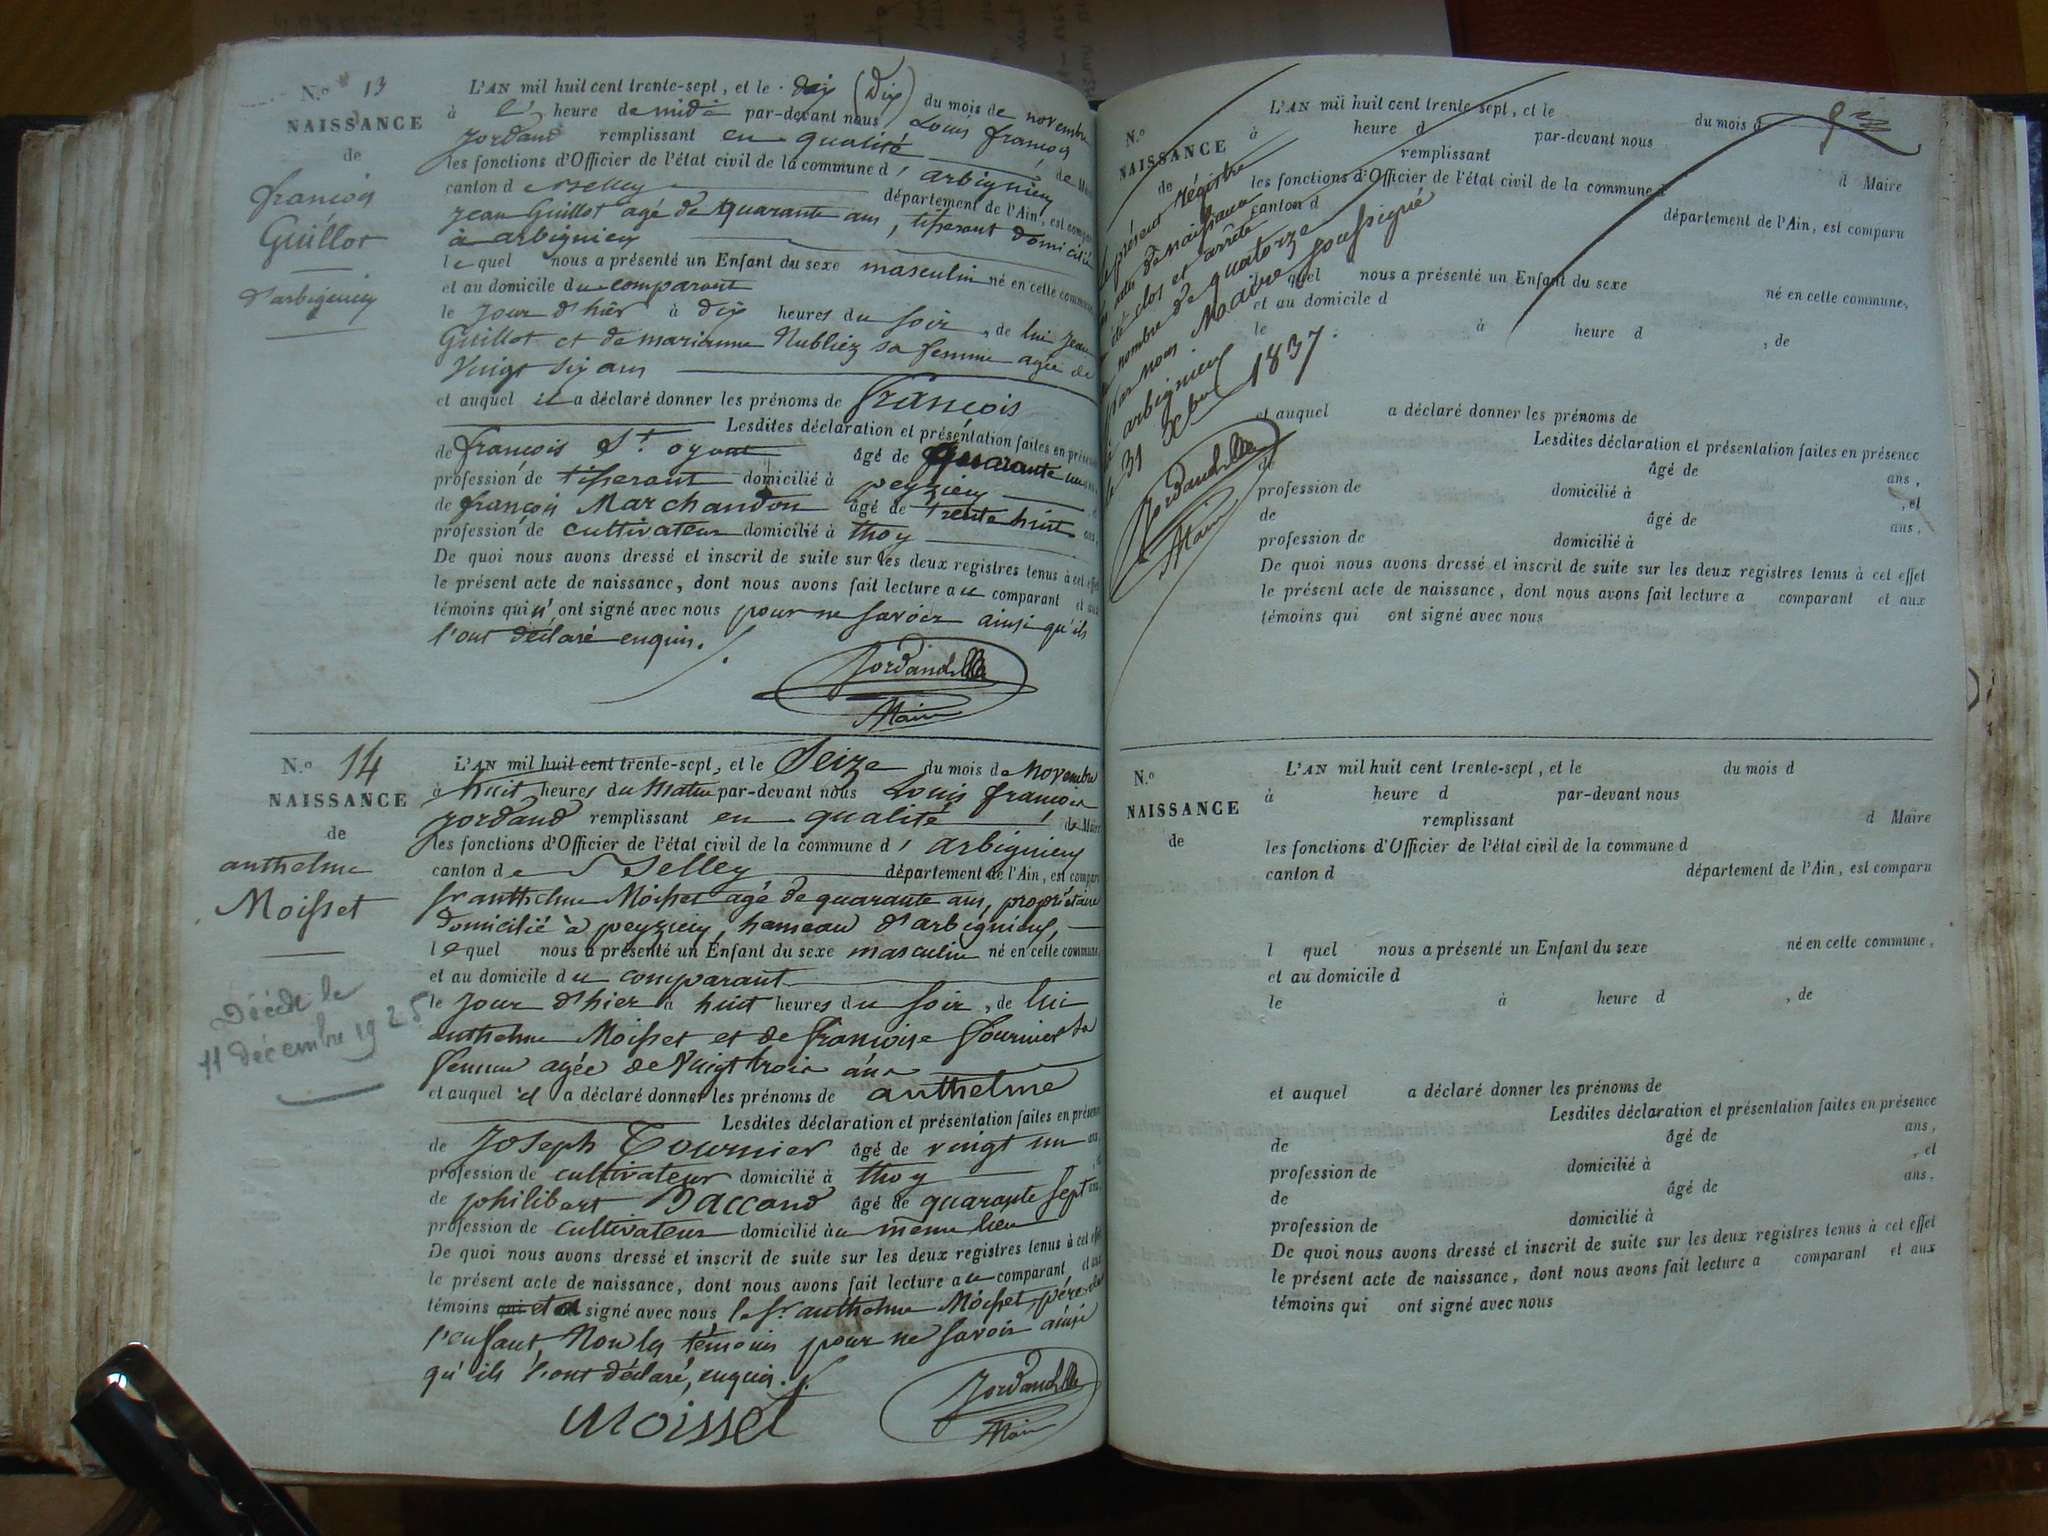 N.º 13
NAISSANCE
de
françois
Guillot
d'arbignieu
L'AN mil huit cent trente-sept, et le dix (Dix) du mois de novembre
à l' heure de midi par-devant nous Louis françois
Jordand remplissant en qualité de Maire
les fonctions d'Officier de l'état civil de la commune d'arbignieu
canton de Belley département de l'Ain, est comparu
Jean Guillot agé de quarante ans, tisserant domicilié
à arbignieu
lequel nous a présenté un Enfant du sexe masculin né en cette commune
et au domicile du comparant
le Jour d'hier à dix heures du soir, de lui Jean
Guillot et de marianne Nubliez sa femme agée de
Vingt six ans
et auquel il a déclaré donner les prénoms de françois
Lesdites déclaration et présentation faites en présence
de françois St. oyant âgé de quarante un ans,
profession de tisserant domicilié à peyzieu
de françois Marchandon âgé de trente huit ans,
profession de cultivateur domicilié à thoy
De quoi nous avons dressé et inscrit de suite sur les deux registres tenus à cet effet
le présent acte de naissance, dont nous avons fait lecture au comparant et aux
témoins qui n'ont signé avec nous pour ne savoir ainsi qu'ils
l'ont déclaré enquis.
Jordand
Maire
N.º 14
NAISSANCE
de
anthelme
Moisset
Décédé le
11 décembre 1925
L'AN mil huit cent trente-sept, et le Seize du mois de Novembre
à huit heures du Matin par-devant nous Louis françois
Jordand remplissant en qualité de Maire
les fonctions d'Officier de l'état civil de la commune d'arbignieu
canton de Belley département de l'Ain, est comparu
sr anthelme Moisset agé de quarante ans, propriétaire
Domicilié à peyzieu, hameau d'arbignieu,
lequel nous a présenté un Enfant du sexe masculin né en cette commune
et au domicile du comparant
le Jour d'hier à huit heures du soir, de lui
anthelme Moisset et de françoise fournier sa
femme agée de Vingt trois ans
et auquel il a déclaré donner les prénoms de anthelme
Lesdites déclaration et présentation faites en présence
de Joseph Tournier âgé de vingt un ans
profession de cultivateur domicilié à thoy
de philibert Baccand âgé de quarante sept ans,
profession de cultivateur domicilié au même lieu
De quoi nous avons dressé et inscrit de suite sur les deux registres tenus à cet effet
le présent acte de naissance, dont nous avons fait lecture au comparant et aux
témoins qui et a signé avec nous le sr anthelme Moisset, père de
l'enfant, Non les témoins pour ne savoir ainsi
qu'ils l'ont déclaré, enquis.
Moisset
Jordand
Maire
N.º
NAISSANCE
de
Le présent régistre
des actes de naissance
a été clos et arrêté
au nombre de quatorze
par nous Maire soussigné
à arbignieu
le 31 Xbre 1837.
Jordand
Maire
L'AN mil huit cent trente-sept, et le du mois d
à heure d par-devant nous
remplissant d Maire
les fonctions d'Officier de l'état civil de la commune d
canton d département de l'Ain, est comparu
l quel nous a présenté un Enfant du sexe né en cette commune,
et au domicile d
le à heure d , de
et auquel a déclaré donner les prénoms de
Lesdites déclaration et présentation faites en présence
de âgé de ans,
profession de domicilié à , et
de âgé de ans,
profession de domicilié à
De quoi nous avons dressé et inscrit de suite sur les deux registres tenus à cet effet
le présent acte de naissance, dont nous avons fait lecture a comparant et aux
témoins qui ont signé avec nous
N.º
NAISSANCE
de
L'AN mil huit cent trente-sept, et le du mois d
à heure d par-devant nous
remplissant d Maire
les fonctions d'Officier de l'état civil de la commune d
canton d département de l'Ain, est comparu
l quel nous a présenté un Enfant du sexe né en cette commune,
et au domicile d
le à heure d , de
et auquel a déclaré donner les prénoms de
Lesdites déclaration et présentation faites en présence
de âgé de ans,
profession de domicilié à , et
de âgé de ans.
profession de domicilié à
De quoi nous avons dressé et inscrit de suite sur les deux registres tenus à cet effet
le présent acte de naissance, dont nous avons fait lecture a comparant et aux
témoins qui ont signé avec nous